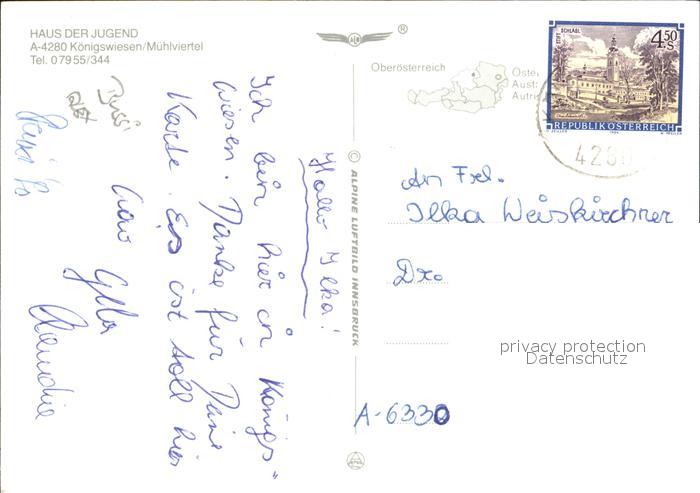 HAUS DER JUGEND
A-4280 Königswiesen/Mühlviertel
Tel. 07955/344
Hallo Ilka!
Ich bin hier in Königs-
wiesen. Danke für Deine
Karte. Es ist toll hier
Ciao
Bussi
Claudia
© ALPINE LUFTBILD INNSBRUCK
®
Oberösterreich
STIFT SCHLÄGL
4.50 S
REPUBLIK ÖSTERREICH
An Frl.
Ilka Weiskirchner
Dr.
privacy protection
Datenschutz
A-6330